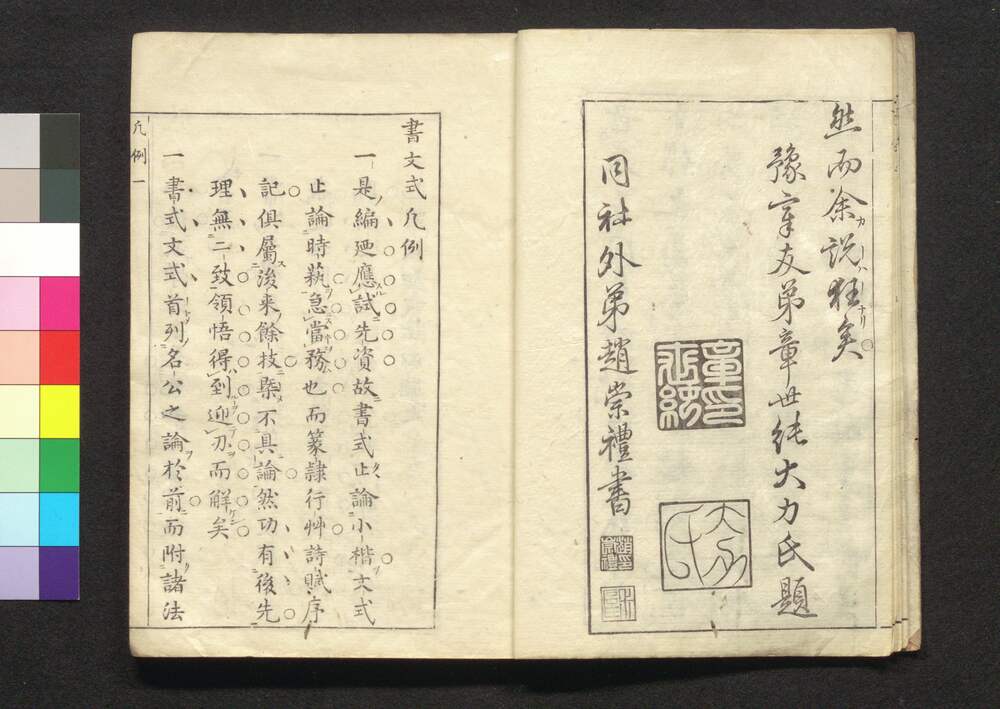 然而余說狂矣
豫章友弟章世純大力氏題
同社外弟趙崇禮書
書文式凡例
一是編廼應試先資故書式止論小楷文式
止論時蓺急當務也而篆隷行艸詩賦序
記俱屬後来餘技槩不具論然功有後先
理無二致領悟得到迎刃而解矣
一書式文式首列名公之論於前而附諸法
凡例一